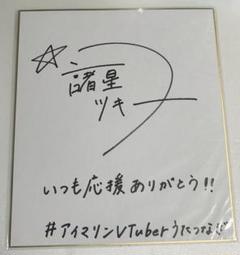 諸星
ツキ
いつも応援ありがとう!!
#アイマリンVTuberうたつなぎ